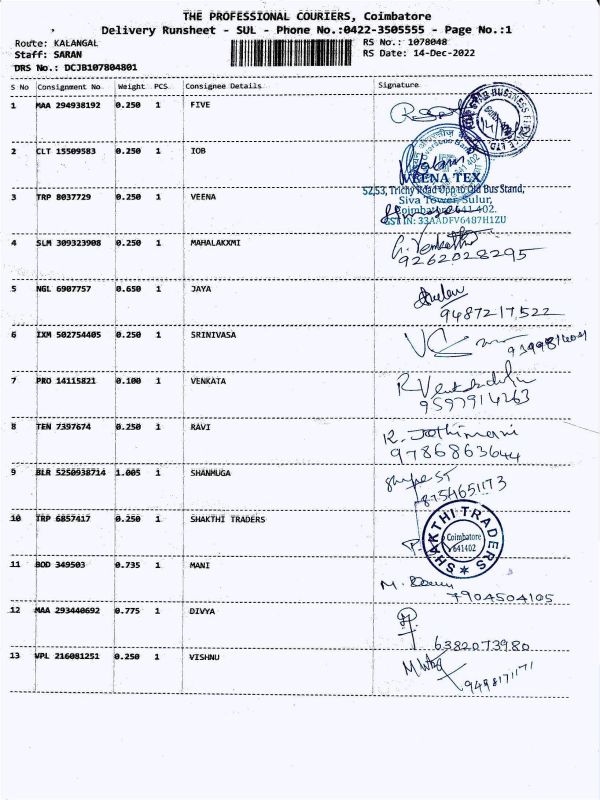 THE PROFESSIONAL COURIERS, Coimbatore
Delivery Runsheet - SUL - Phone No.:0422-3505555 - Page No.:1
Route: KALANGAL RS No.: 1078048
Staff: SARAN RS Date: 14-Dec-2022
DRS No.: DCJB107804801
S No Consignment No Weight PCS Consignee Details Signature
1 MAA 294938192 0.250 1 FIVE
2 CLT 15509583 0.250 1 IOB
VEENA TEX
52,53, Trichy Road Opp to Old Bus Stand,
3 TRP 8037729 0.250 1 VEENA Siva Tower, Sulur,
Coimbatore 641 402.
GSTIN: 33AADFV6487H1ZU
4 SLM 309323908 0.250 1 MAHALAKXMI
9262028295
5 NGL 6907757 0.650 1 JAYA
9487217522
6 IXM 502754405 0.250 1 SRINIVASA
7 PRO 14115821 0.100 1 VENKATA
9597914263
8 TEN 7397674 0.250 1 RAVI K. Jothimani
9786863644
9 BLR 5250938714 1.005 1 SHANMUGA
8754651173
10 TRP 6857417 0.250 1 SHAKTHI TRADERS
SHAKTHI TRADERS
Coimbatore
641402
11 BOD 349503 0.735 1 MANI
7904504105
12 MAA 293440692 0.775 1 DIVYA
6382073980
13 VPL 216081251 0.250 1 VISHNU
9498171171